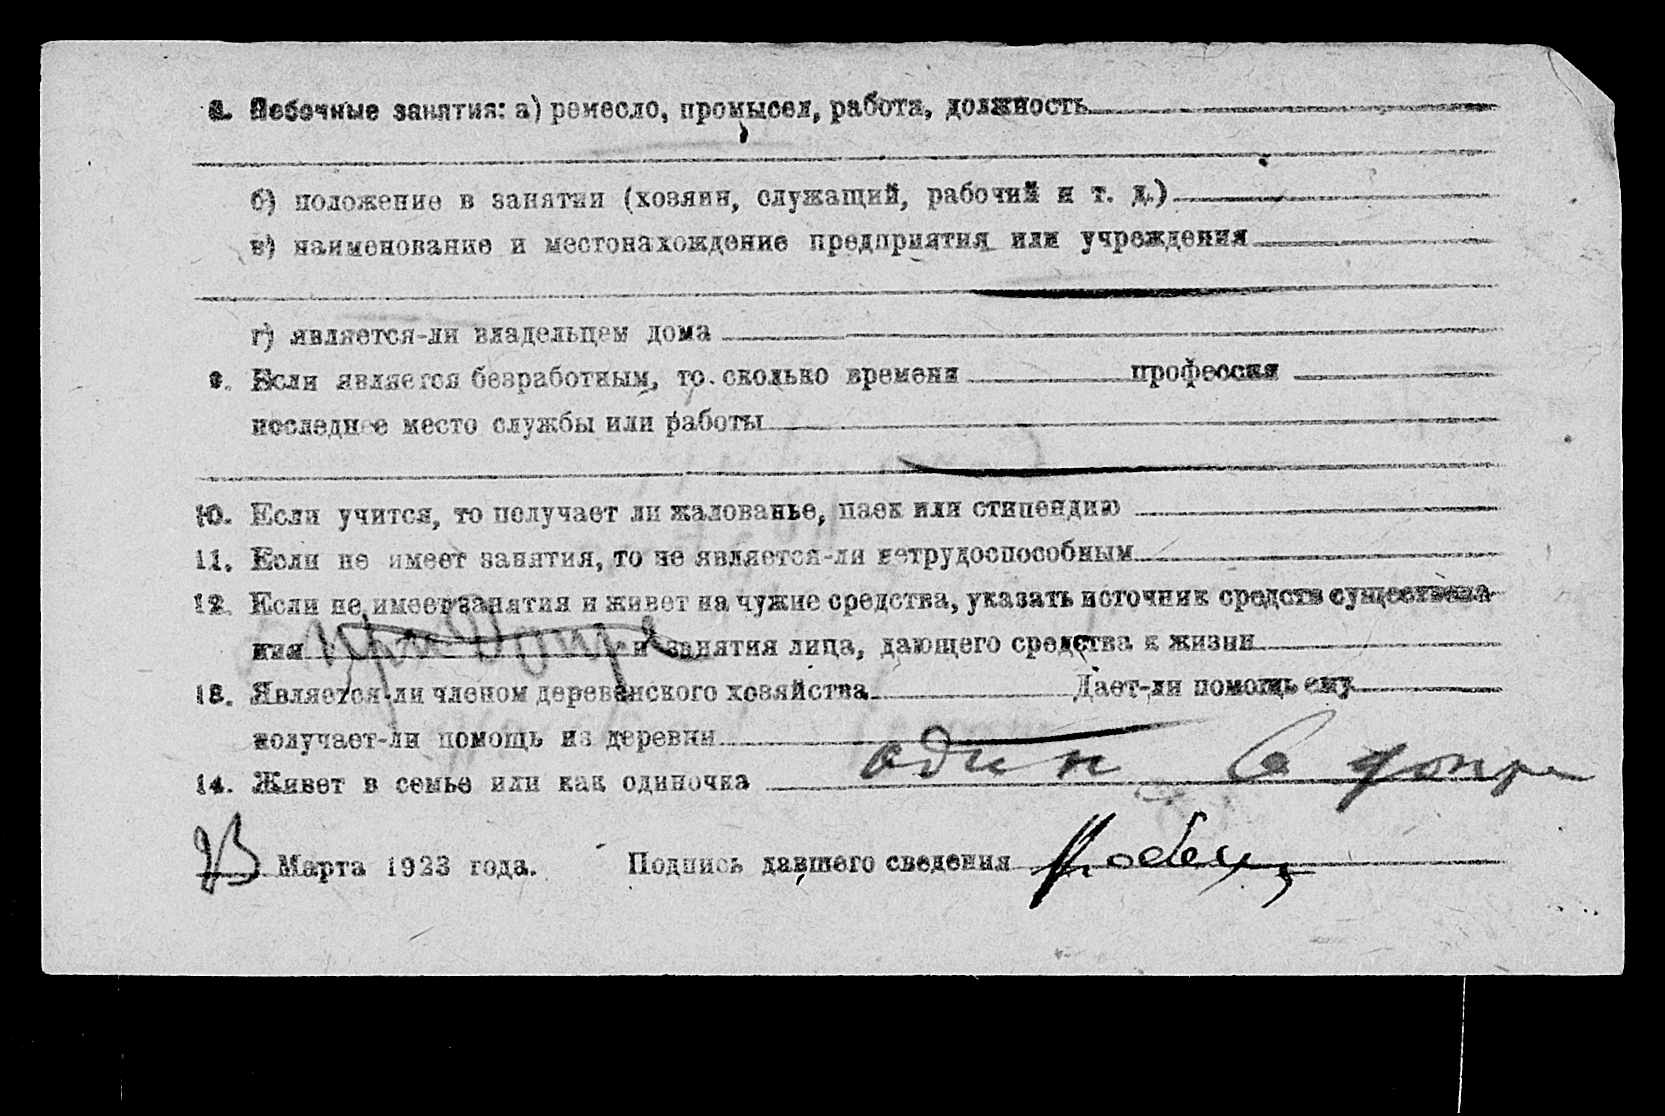 8. Побочные занятия: а) ремесло, промысел, работа, должность
б) положение в занятии (хозяин, служащий, рабочий и т. д.)
в) наименование и местонахождение предприятия или учреждения
г) является-ли владельцем дома
9. Если является безработным, то сколько времени профессия
последнее место службы или работы
10. Если учится, то получает ли жалованье, паек или стипендию
11. Если не имеет занятия, то не является-ли нетрудоспособным
12. Если не имеет занятия и живет на чужие средства, указать источник средств существова
ния и занятия лица, дающего средства к жизни
13. Является-ли членом деревенского хозяйства Дает-ли помощь ему
получает-ли помощь из деревни
14. Живет в семье или как одиночка один в
Марта 1923 года. Подпись давшего сведения